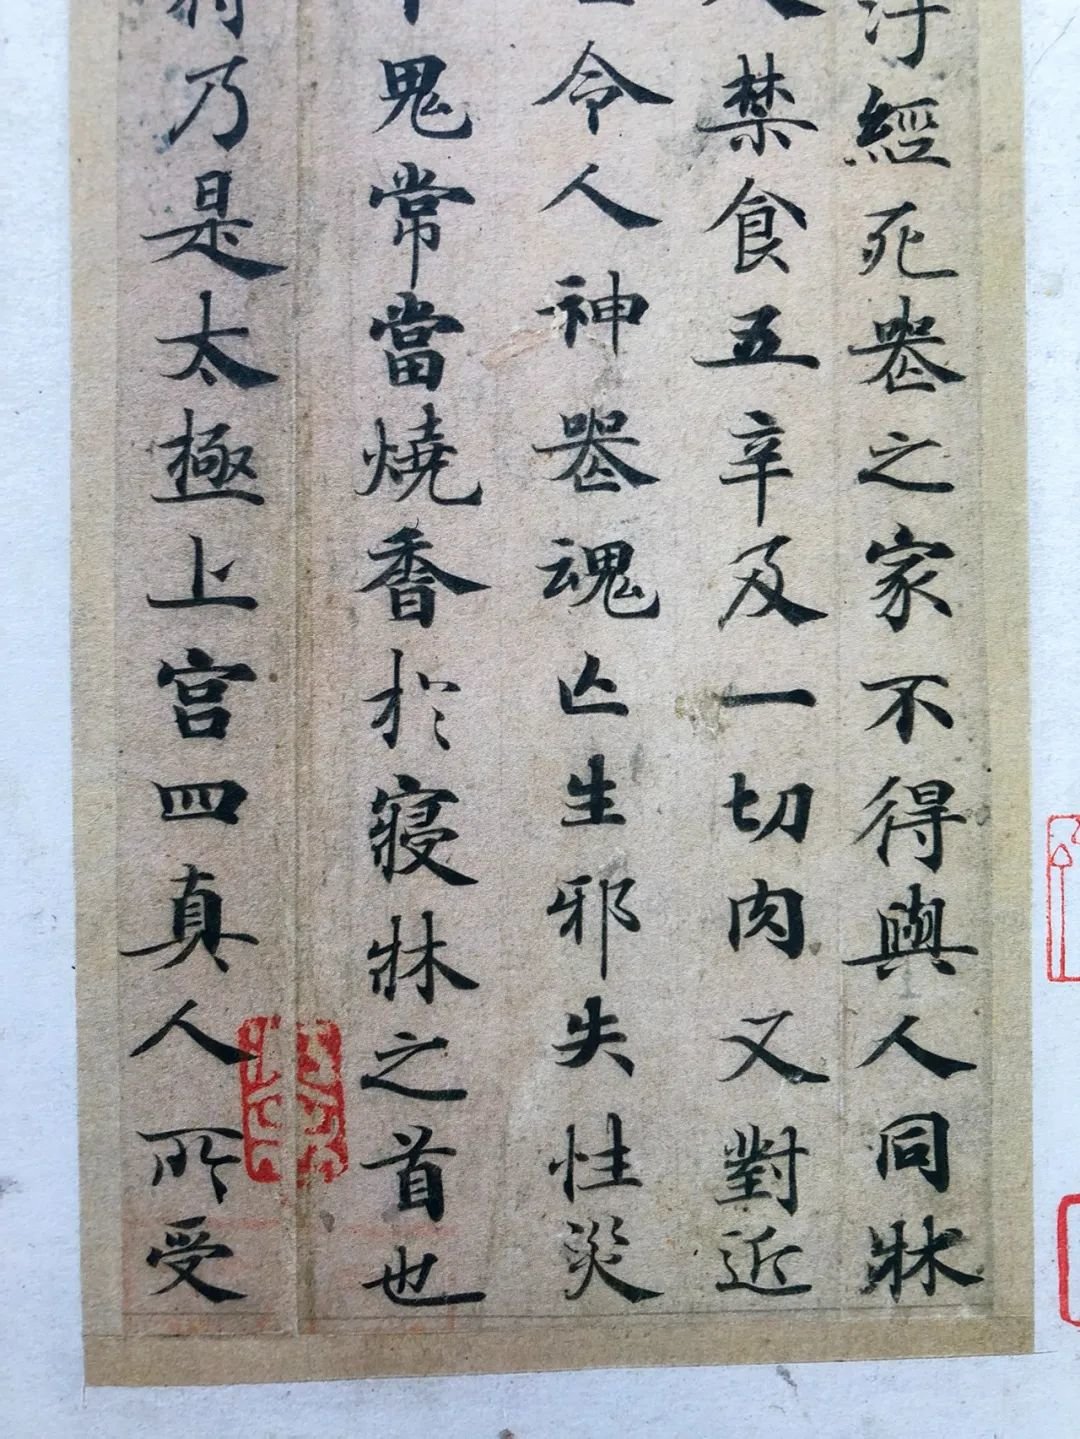 汙經死喪之家不得與人同牀
禁食五辛及一切肉又對近
令人神喪魂亾生邪失性災
鬼常當燒香於寢牀之首也
乃是太極上宮四真人所受